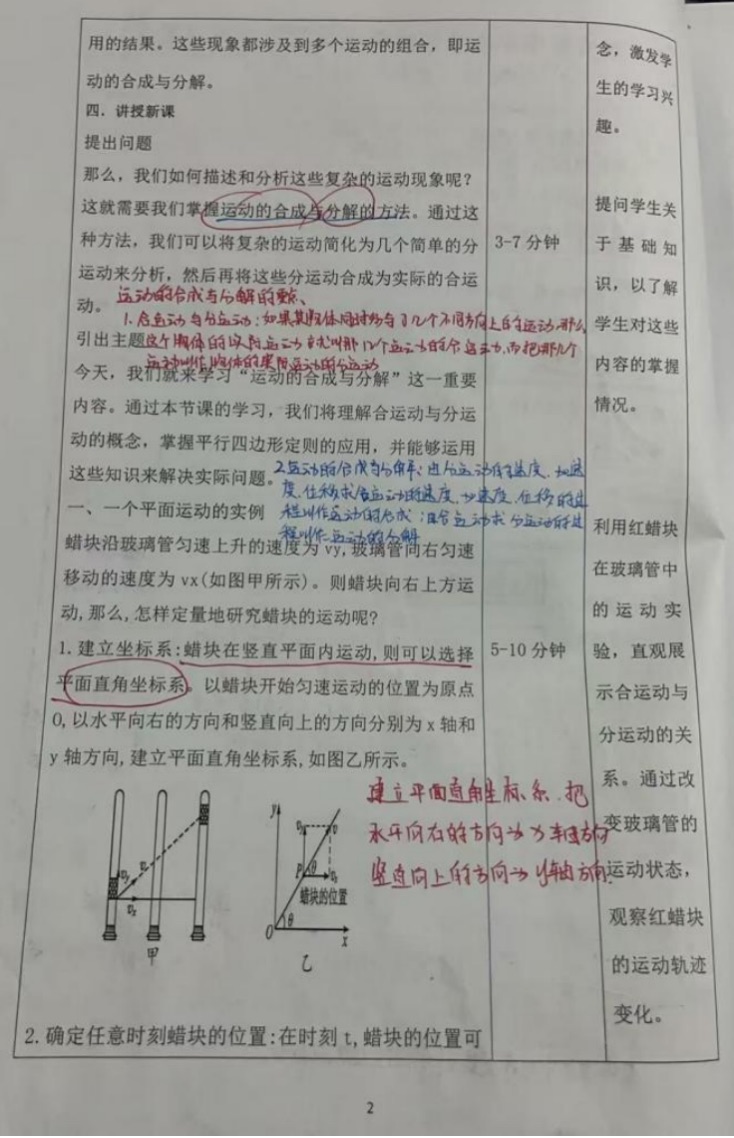 用的结果。这些现象都涉及到多个运动的组合，即运
动的合成与分解。
四．讲授新课
提出问题
那么，我们如何描述和分析这些复杂的运动现象呢？
这就需要我们掌握运动的合成与分解的方法。通过这
种方法，我们可以将复杂的运动简化为几个简单的分
运动来分析，然后再将这些分运动合成为实际的合运
动。
运动的合成与分解的要点、
1.合运动与分运动：如果某物体同时参与了几个不同方向上的运动,那么
引出主题
这个物体的实际运动就叫那几个运动的合运动,而把那几个
运动叫作物体的实际运动的分运动
今天，我们就来学习“运动的合成与分解”这一重要
内容。通过本节课的学习，我们将理解合运动与分运
动的概念，掌握平行四边形定则的应用，并能够运用
这些知识来解决实际问题。
2.运动的合成与分解:由分运动的速度、加速
度、位移求合运动的速度、加速度、位移的过
程叫作运动的合成;由合运动求分运动的过
程叫作运动的分解
一、一个平面运动的实例
蜡块沿玻璃管匀速上升的速度为 vy,玻璃管向右匀速
移动的速度为 vx(如图甲所示)。则蜡块向右上方运
动,那么,怎样定量地研究蜡块的运动呢?
1.建立坐标系:蜡块在竖直平面内运动,则可以选择
平面直角坐标系。以蜡块开始匀速运动的位置为原点
O,以水平向右的方向和竖直向上的方向分别为 x 轴和
y 轴方向,建立平面直角坐标系,如图乙所示。
建立平面直角坐标系.把
水平向右的方向为x轴方向
竖直向上的方向为y轴方向
vy
v
vx
甲
y
vy
v
P
θ
vx
蜡块的位置
O
θ
x
乙
2.确定任意时刻蜡块的位置:在时刻 t,蜡块的位置可
3-7 分钟
5-10 分钟
念，激发学
生的学习兴
趣。
提问学生关
于基础知
识，以了解
学生对这些
内容的掌握
情况。
利用红蜡块
在玻璃管中
的运动实
验，直观展
示合运动与
分运动的关
系。通过改
变玻璃管的
运动状态，
观察红蜡块
的运动轨迹
变化。
2